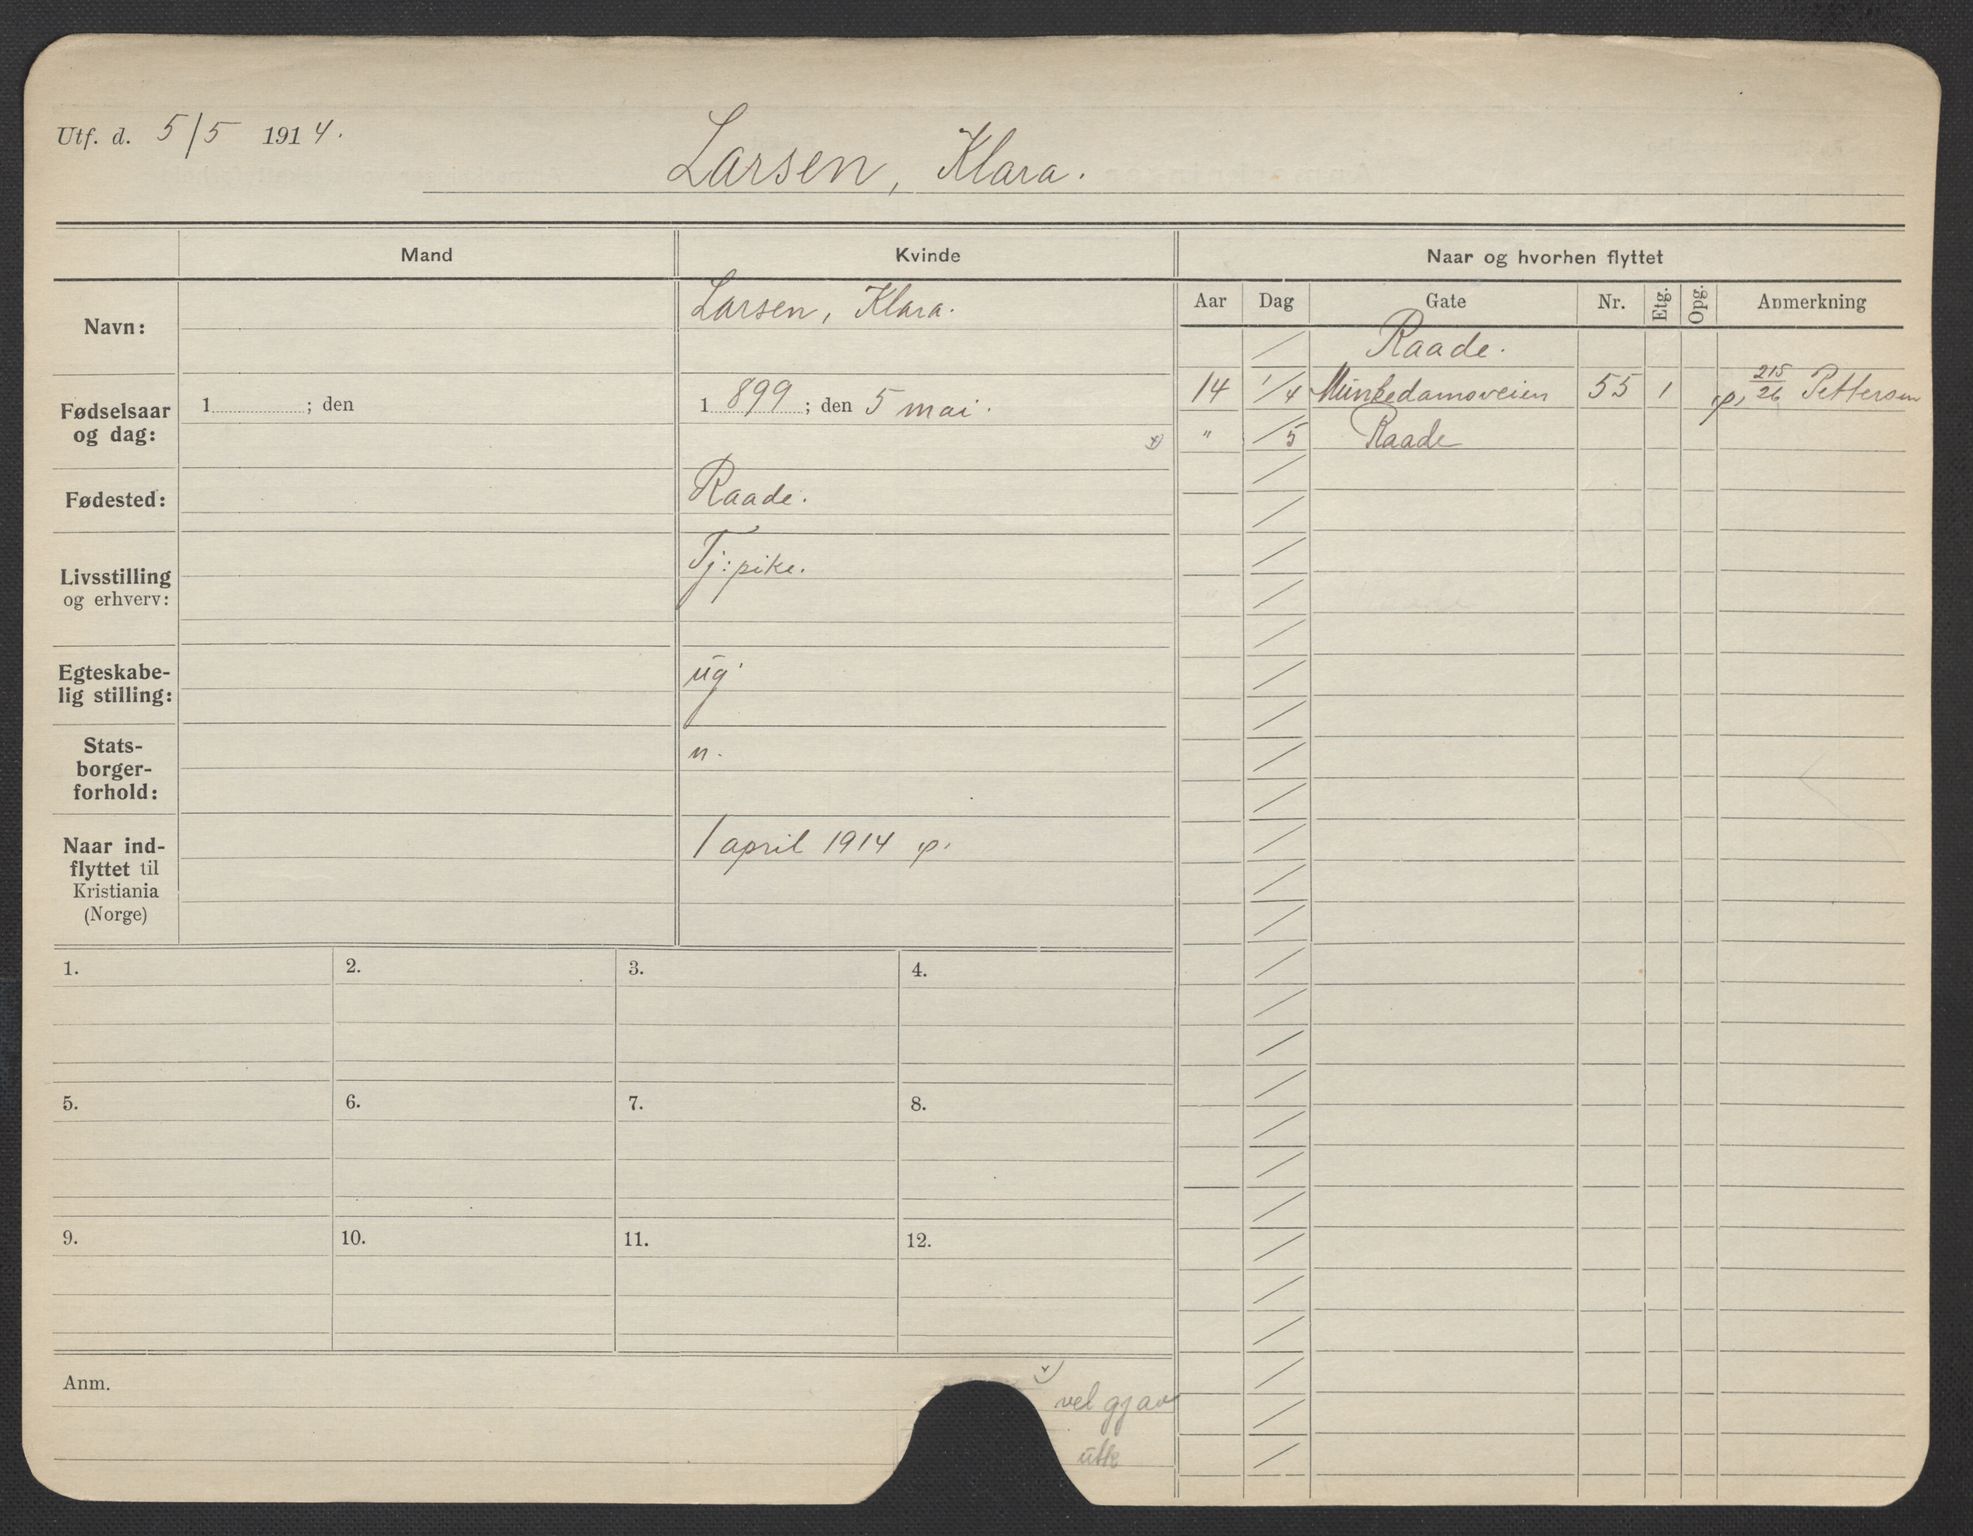 Utf. d. 5/5 1914.
Larsen, Klara.
Mand
Kvinde
Naar og hvorhen flyttet
Navn:
Larsen, Klara.
Fødselsaar og dag:
1 ; den
1 899 ; den 5 mai.
x)
Fødested:
Raade.
Livsstilling
og erhverv:
Tj: pike.
Egteskabe-
lig stilling:
ug.
Stats-
borger-
forhold:
n.
Naar ind-
flyttet til
Kristiania
(Norge)
1 april 1914 φ.
Aar Dag Gate Nr. Etg. Opg. Anmerkning
/ Raade.
14 1/4 Munkedamsveien 55 1 φ, 215/26 Pettersen
" /5 Raade
1. 2. 3. 4.
5. 6. 7. 8.
9. 10. 11. 12.
Anm.
x)
vel gj av
utk